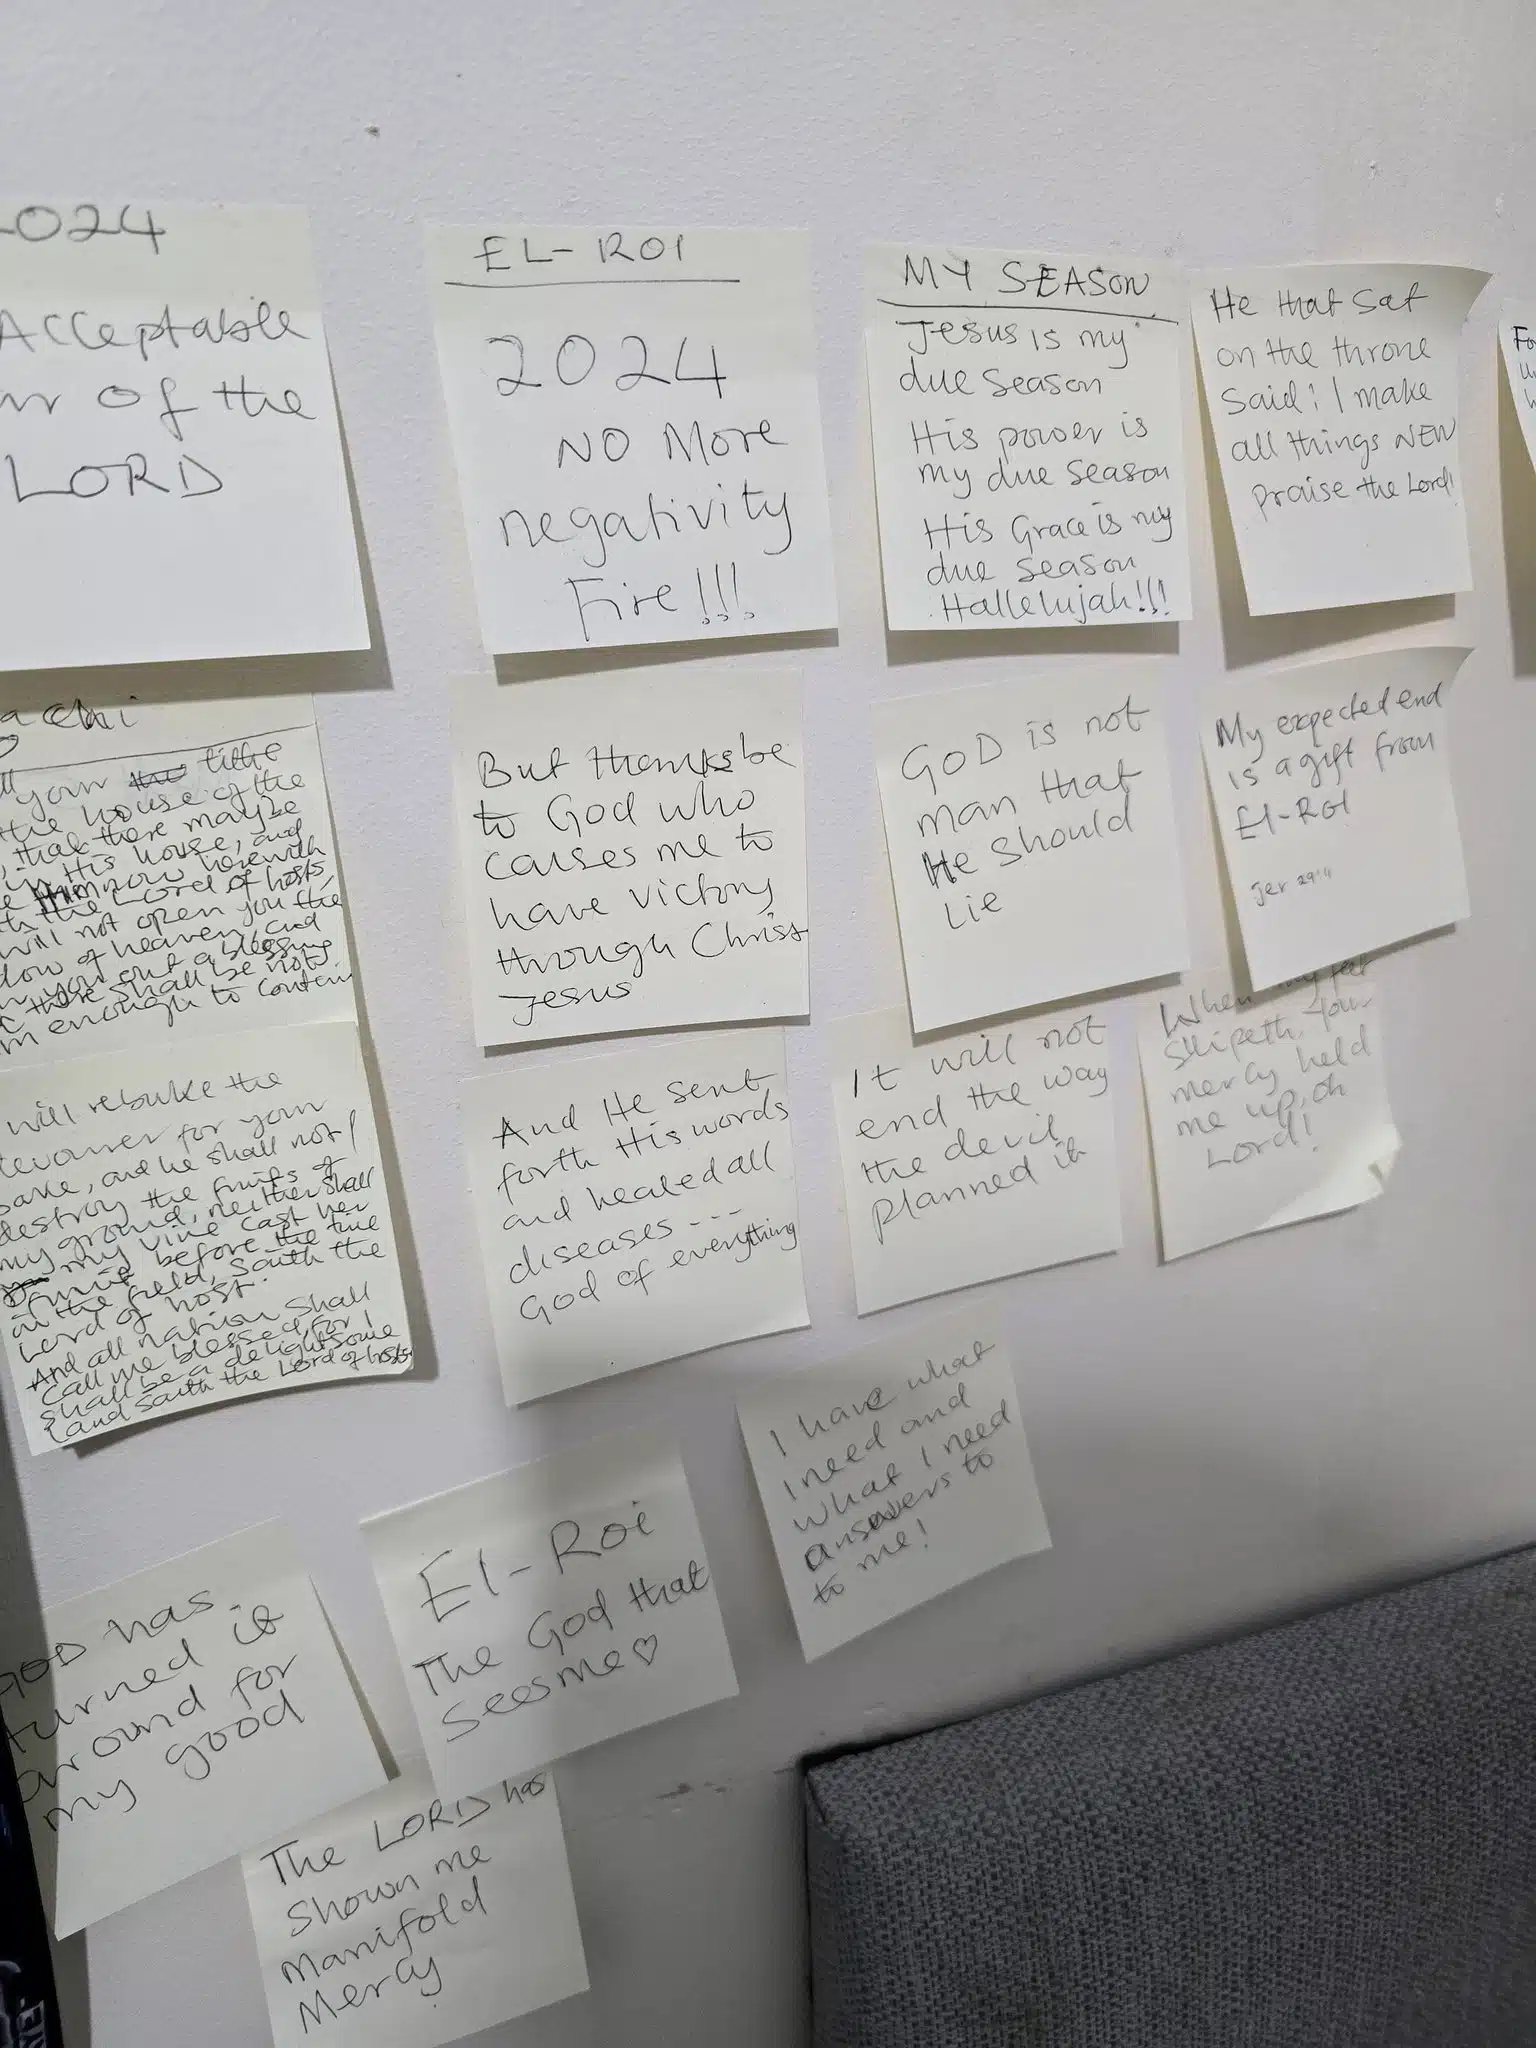 2024
Acceptable
of the
LORD
EL-ROI
2024
NO More
negativity
Fire!!!
MY SEASON
Jesus is my
due season
His power is
my due season
His Grace is my
due season
Hallelujah!!!
He that Sat
on the throne
Said: I make
all things NEW
praise the Lord!
your tithe
the house of the
that there maybe
in His house, and
now herewith
the Lord of hosts,
will not open you the
of heaven, and
you out a blessing
there shall be not
enough to contain
But thanks be
to God who
causes me to
have victory
through Christ
Jesus
GOD is not
man that
He should
Lie
My expected end
is a gift from
El-ROI
Jer 29:11
will rebuke the
for your
sake, and he shall not
destroy the fruits of
my ground, neither shall
my vine cast her
fruit before the time
in the field, saith the
Lord of host.
And all nation shall
call me blessed, for I
shall be a delightsome
land saith the Lord of hosts
And He sent
forth His words
and healed all
diseases ---
God of everything
It will not
end the way
the devil
planned it
When my
Slipeth, your
mercy held
me up, oh
Lord!
I have what
I need and
what I need
answers to
to me!
GOD has
turned it
around for
my good
El-Roi
The God that
Sees me♡
The LORD has
Shown me
Manifold
Mercy